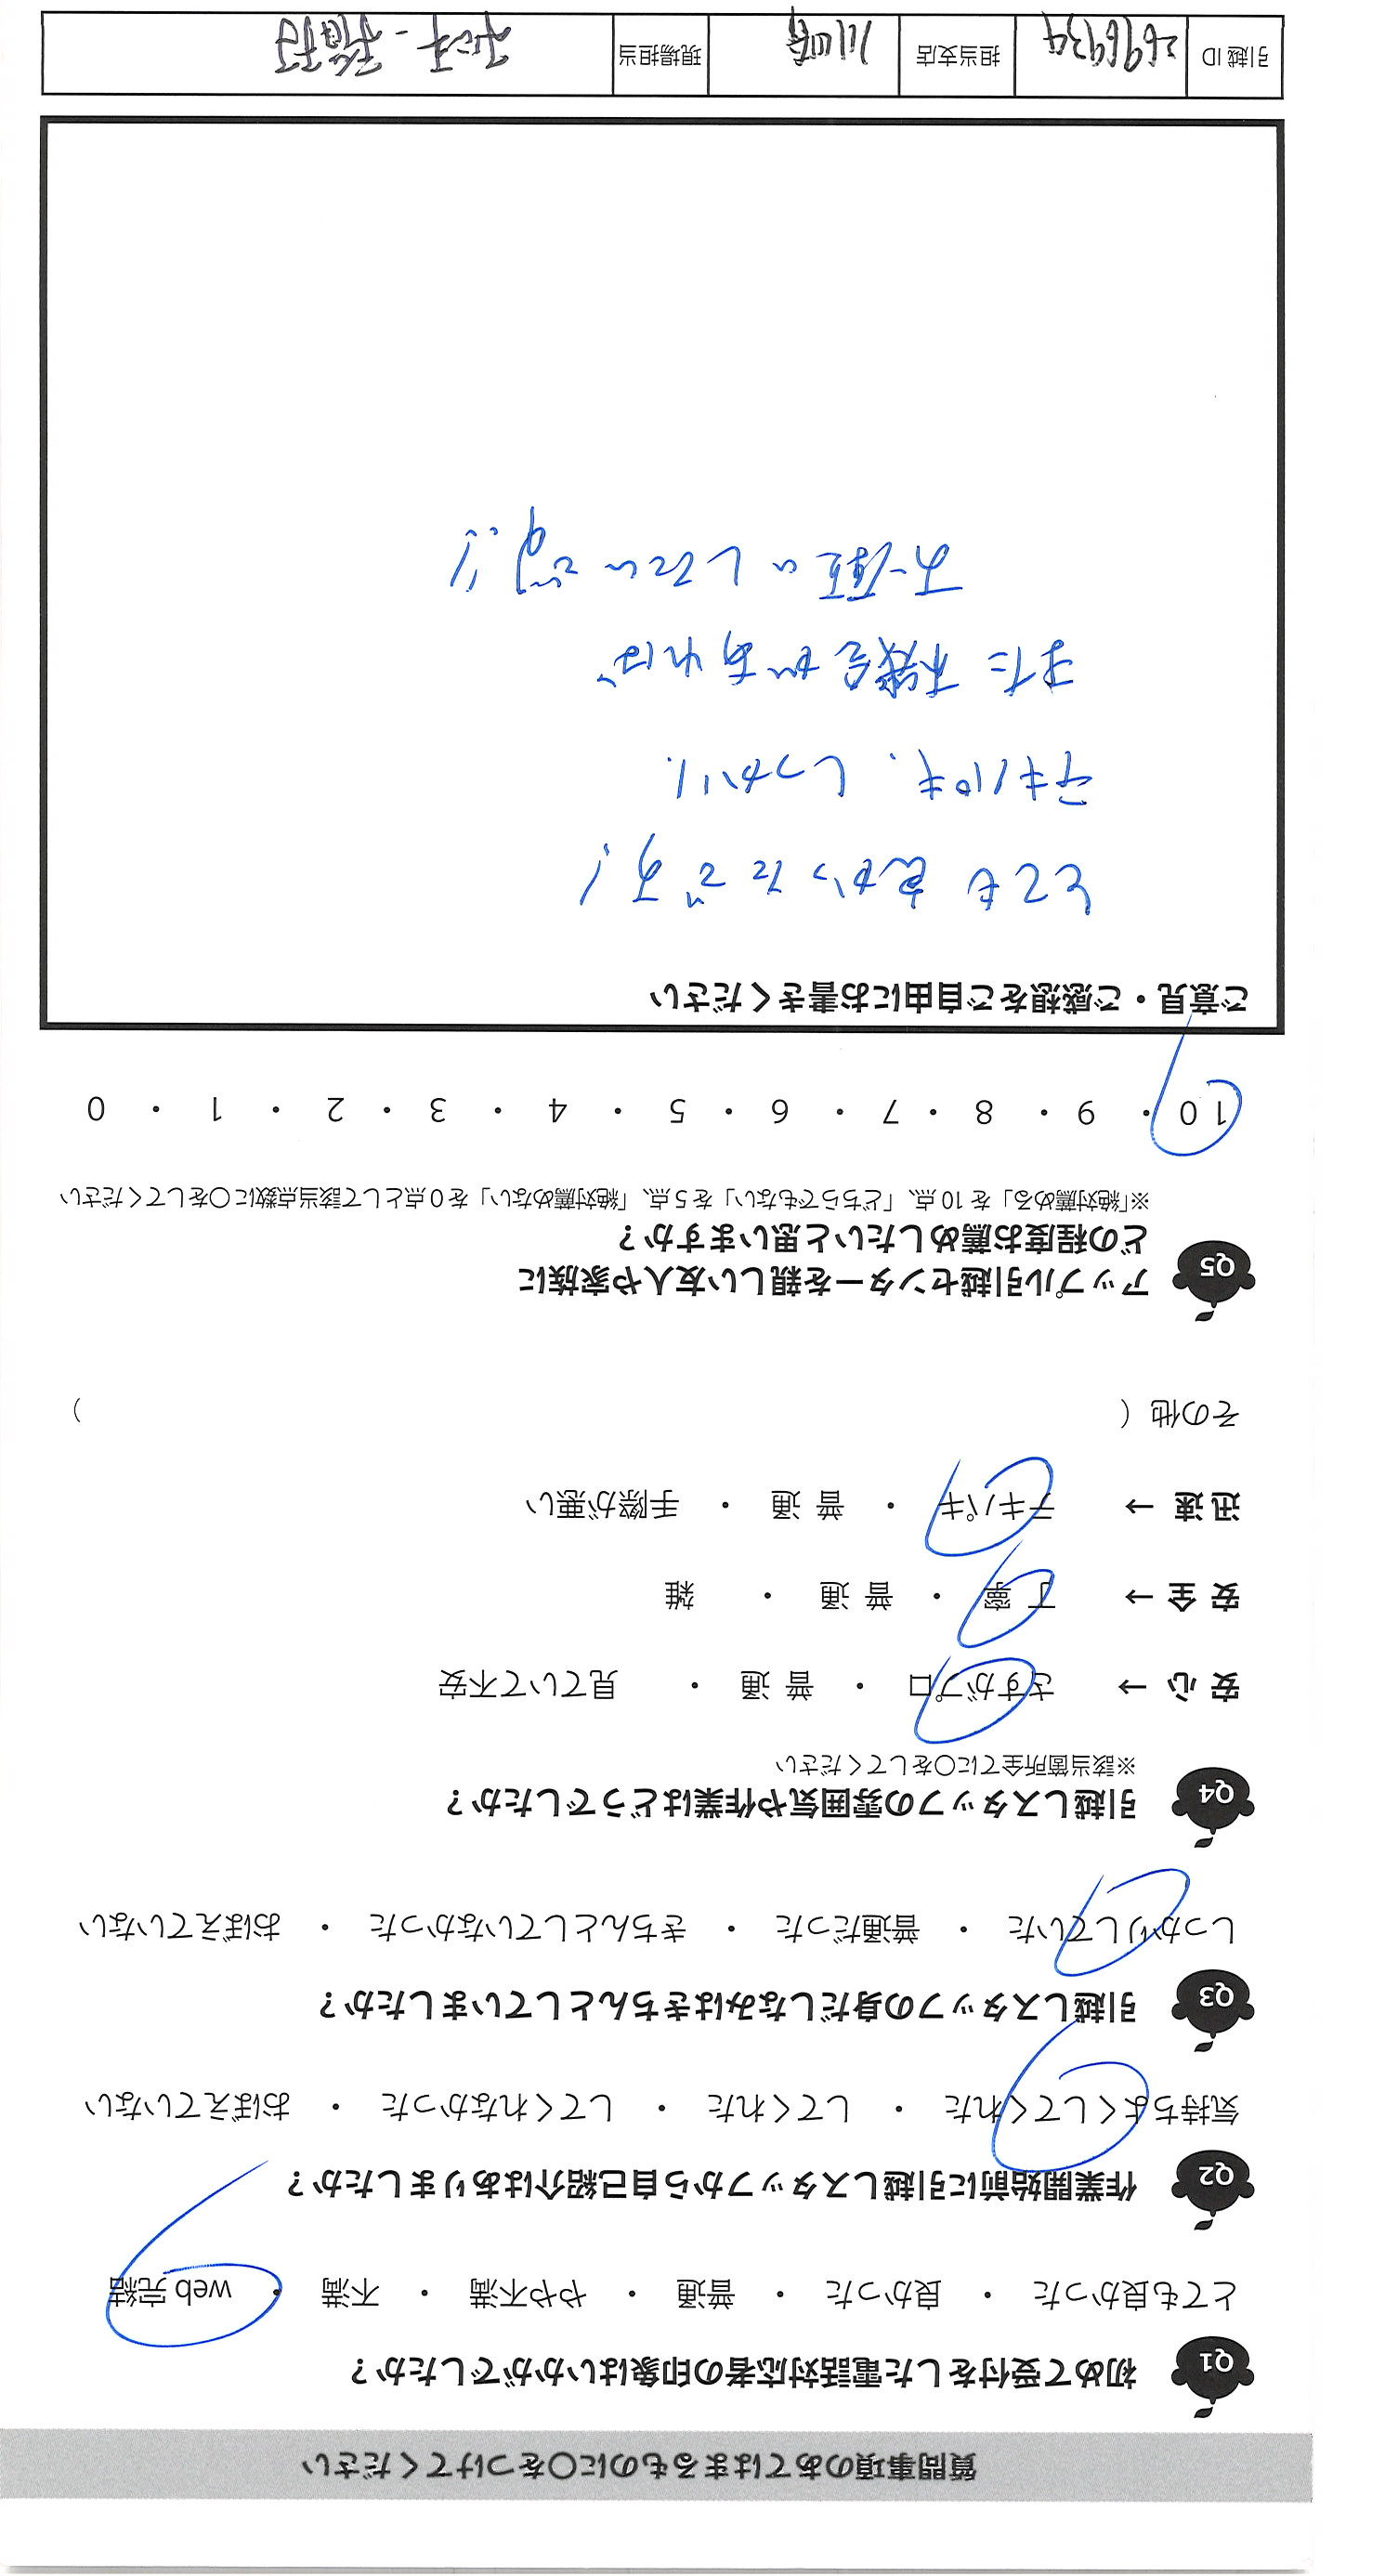 質問事項のあてはまるものに〇をつけてください
Q1 初めて受付をした電話対応者の印象はいかがでしたか？
とても良かった ・ 良かった ・ 普通 ・ やや不満 ・ 不満 ・ web 完結
Q2 作業開始前に引越しスタッフから自己紹介はありましたか？
気持ちよくしてくれた ・ してくれた ・ してくれなかった ・ おぼえていない
Q3 引越しスタッフの身だしなみはきちんとしていましたか？
しっかりしていた ・ 普通だった ・ きちんとしていなかった ・ おぼえていない
Q4 引越しスタッフの雰囲気や作業はどうでしたか？
※該当箇所全てに〇をしてください
安 心 → さすがプロ ・ 普 通 ・ 見ていて不安
安 全 → 丁 寧 ・ 普 通 ・ 雑
迅 速 → テキパキ ・ 普 通 ・ 手際が悪い
その他（ ）
Q5 アップル引越センターを親しい友人や家族に
どの程度お薦めしたいと思いますか？
※「絶対薦める」を 10 点、「どちらでもない」を 5 点、「絶対薦めない」を 0 点として該当点数に〇をしてください
10 ・ 9 ・ 8 ・ 7 ・ 6 ・ 5 ・ 4 ・ 3 ・ 2 ・ 1 ・ 0
ご意見・ご感想をご自由にお書きください
とても良かったです!
テキパキ、しっかり、
また機会があれば
お値いしたいです!!
引越 ID 2696939 担当支店 川崎 現場担当